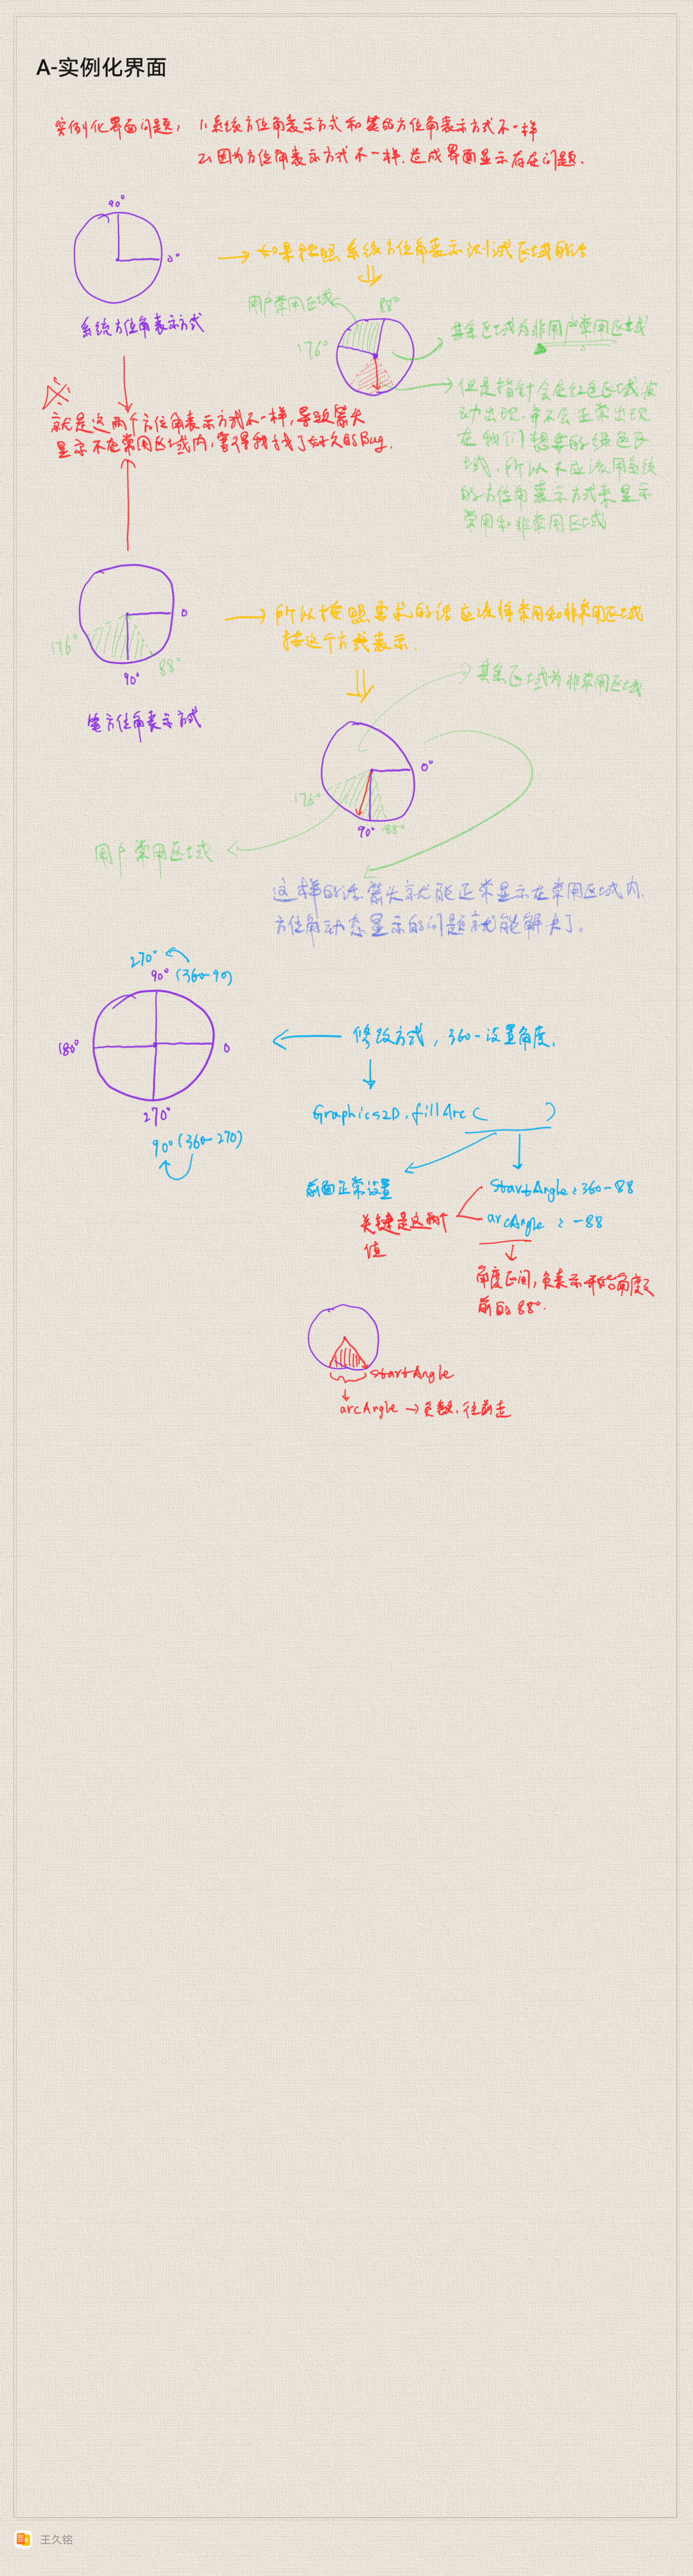 A-实例化界面
实例化界面问题: 1、系统方位角表示方式和笔的方位角表示方式不一样
2、因为方位角表示方式不一样,造成界面显示存在问题.
90°
0°
系统方位角表示方式
如果按照系统方位角表示测试区域的话
用户常用区域
88°
176°
其余区域为非用户常用区域
但是指针会在红色区域
动出现,并不会正常出现
在我们想要的绿色区
域,所以不应该用系统
的方位角表示方式来显示
常用和非常用区域
就是这两个方位角表示方式不一样,导致箭头
显示不在常用区域内,害得我找了好久的Bug.
0
176°
88°
90°
笔方位角表示方式
所以按照要求的话应该将常用和非常用区域
按这个方式表示.
其余区域为非常用区域
0°
176°
90°
88°
用户常用区域
这样的话箭头就能正常显示在常用区域内.
方位角动态显示的问题就能解决了。
270°
90° (360-90)
180°
0
270°
90° (360-270)
修改方式, 360-设置角度.
Graphics2D.fillArc( )
前面正常设置
startAngle: 360-88
arcAngle: -88
关键是这两个
值
角度区间,负表示开始角度之
前的 88°.
startAngle
arcAngle → 负数,往前走
王久铭